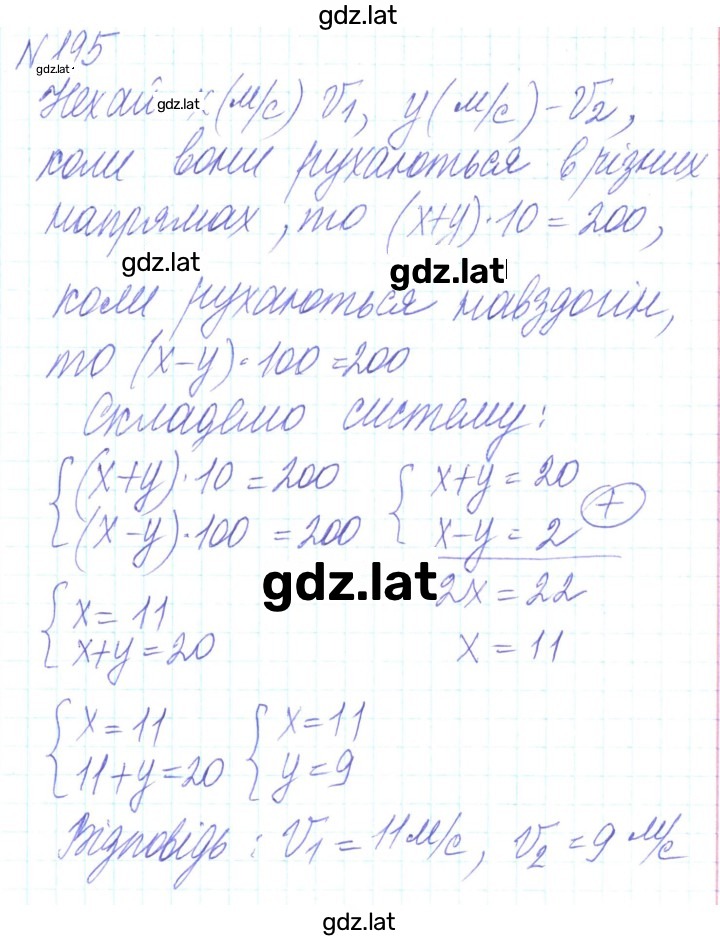 gdz.lat
N 195
gdz.lat
Нехай gdz.lat x (м/с) V₁, y (м/с) - V₂,
коли вони рухаються в різних
напрямах, то (x+y)·10 = 200,
gdz.lat
gdz.lat
коли рухаються навздогін,
то (x-y)·100 = 200
Складемо систему:
{ (x+y)·10 = 200 { x+y = 20
(x-y)·100 = 200 x-y = 2 (+)
gdz.lat 2x = 22
{ x = 11
x+y = 20 x = 11
{ x = 11 { x = 11
11+y = 20 y = 9
Відповідь: V₁ = 11 м/с, V₂ = 9 м/с
gdz.lat